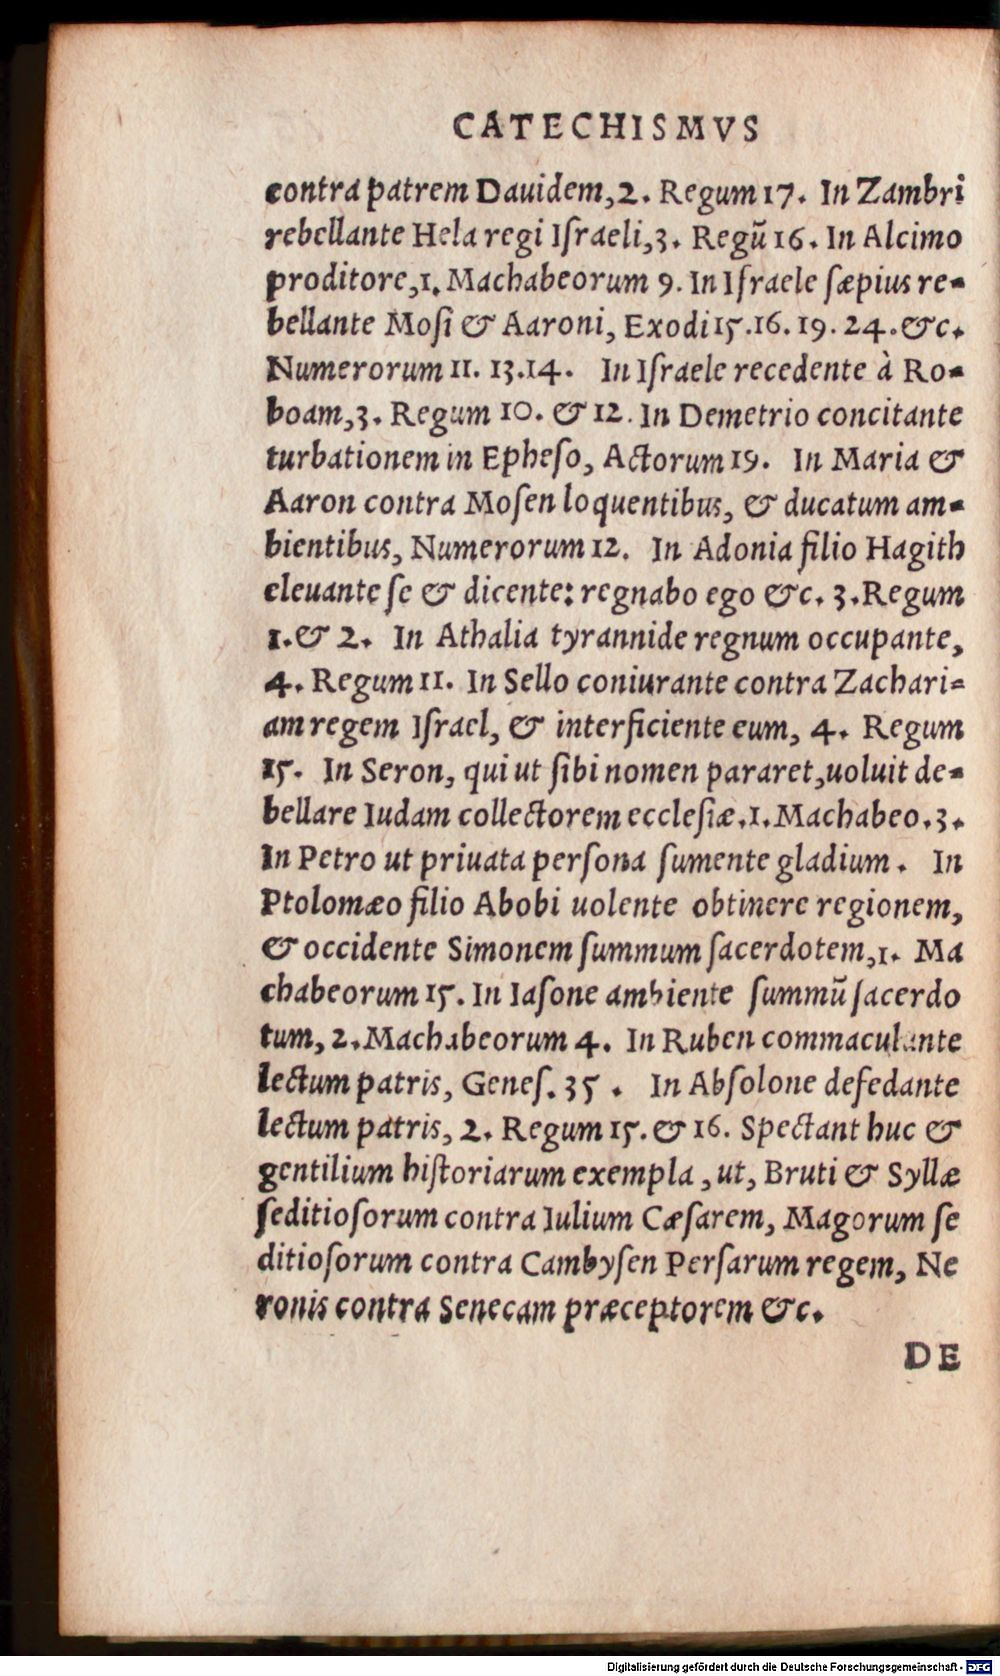 CATECHISMVS
contra patrem Dauidem,2. Regum 17. In Zambri
rebellante Hela regi Iſraeli,3. Regū 16. In Alcimo
proditore,1. Machabeorum 9. In Iſraele ſæpius re-
bellante Moſi & Aaroni, Exodi 15.16.19.24.&c.
Numerorum 11. 13.14. In Iſraele recedente à Ro-
boam,3. Regum 10. & 12. In Demetrio concitante
turbationem in Epheſo, Actorum 19. In Maria &
Aaron contra Moſen loquentibus, & ducatum am-
bientibus, Numerorum 12. In Adonia filio Hagith
eleuante ſe & dicente: regnabo ego &c. 3.Regum
1.& 2. In Athalia tyrannide regnum occupante,
4. Regum 11. In Sello coniurante contra Zachari-
am regem Iſrael, & interficiente eum, 4. Regum
15. In Seron, qui ut ſibi nomen pararet,uoluit de-
bellare Iudam collectorem eccleſiæ.1.Machabeo.3.
In Petro ut priuata perſona ſumente gladium. In
Ptolomæo filio Abobi uolente obtinere regionem,
& occidente Simonem ſummum ſacerdotem,1. Ma
chabeorum 15. In Iaſone ambiente ſummū ſacerdo
tum, 2.Machabeorum 4. In Ruben commaculante
lectum patris, Geneſ. 35 . In Abſolone defedante
lectum patris, 2. Regum 15.& 16. Spectant huc &
gentilium hiſtoriarum exempla, ut, Bruti & Syllæ
ſeditioſorum contra Iulium Cæſarem, Magorum ſe
ditioſorum contra Cambyſen Perſarum regem, Ne
ronis contra Senecam præceptorem &c.
DE
Digitalisierung gefördert durch die Deutsche Forschungsgemeinschaft - DFG